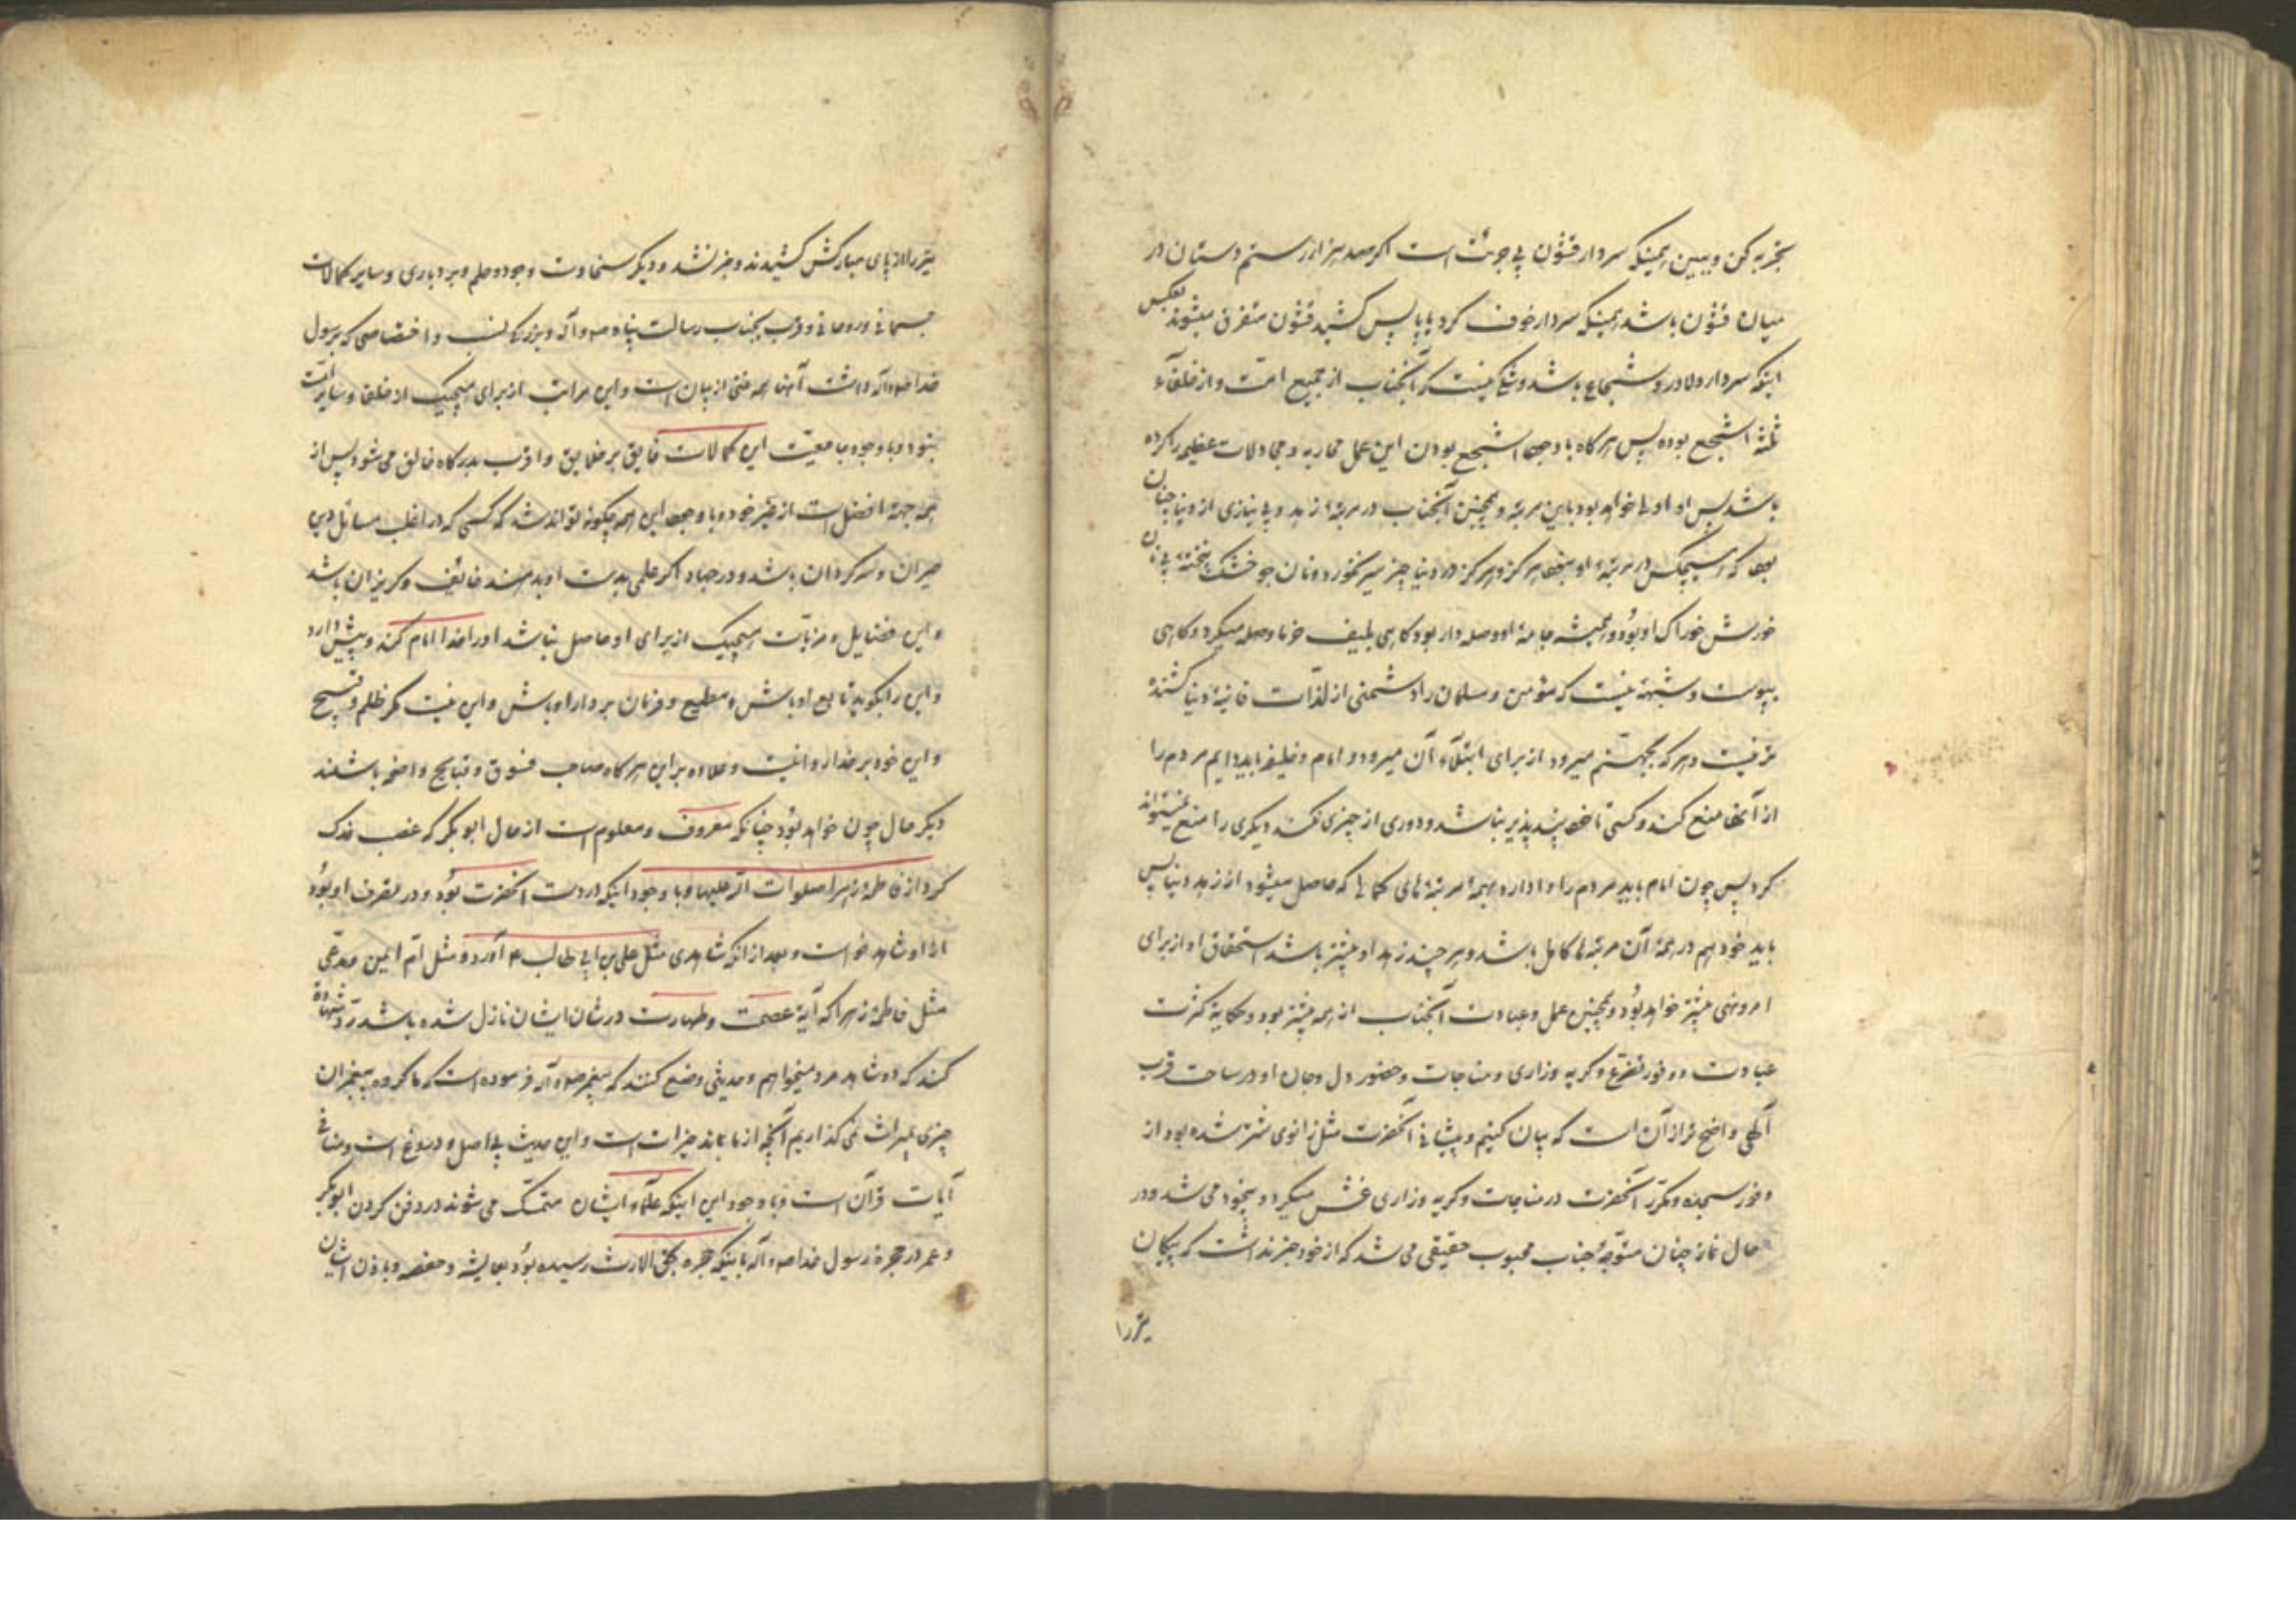 تجربه کن و ببین همینکه سردار قشون بی جرئت است اکر صد هزار رستم دستان در
میان قشون باشد همینکه سردار خوف کرد یا پا پس کشید قشون متفرق میشوند بعکس
اینکه سردار دلاور و شجاع باشد و شکی نیست که آنجناب از جمیع امت و از خلفآء
ثلثه اشجع بوده پس هر کاه با وجود اشجع بودن این عمل محاربه و مجادلات عظیمه را کرده
باشد پس او اولی خواهد بود باین مرتبه و همچنین آنجناب در مرتبهٔ زهد و بی نیازی از دنیا چنان
بود که هیچکس در مرتبهٔ او نبود هرکز و هرکز در دنیا چیز سیر نخورد و نان جو خشک پخته بی نان
خورش خوراک او بود و همیشه جامهٔ او وصله دار بود کاهی بلیف خرما وصله میکرد و کاهی
بپوست و شبهه نیست که مؤمن و مسلمان را دشمنی از لذّات فانیهٔ دنیا کشنده
تر نیست و هر که بجهنّم میرود از برای ابتلآء آن میرود و امام و خلیفه باید دایم مردم را
از آنها منع کند و کسی تا خود پند پذیر نباشد و دوری از چیزی نکند دیکری را منع نمیتواند
کرد پس چون امام باید مردم را وادارد بهمهٔ مرتبه‌های کمالی که حاصل میشود از زهد دنیا پس
باید خود هم در همهٔ آن مرتبه‌ها کامل باشد و هر چند زهد او بیشتر باشد استحقاق او از برای
امر و نهی بیشتر خواهد بود و همچنین عمل و عبادت آنجناب از همه بیشتر بود و حکایة کثرت
عبادت و وفور تضرّع و کریه و زاری و مناجات و حضور دل و جان او در ساحت قرب
آلهی واضح تر از آن است که بیان کنیم و پیشانی آنحضرت مثل زانوی شتر شده بود از
وفور سجده و مکرّر آنحضرت در مناجات و کریه و زاری غش میکرد و بیخود می شد و در
حال نماز چنان متوّجهٔ جناب محبوب حقیقی می شد که از خود خبر نداشت که پیکان
تیر را
تیر را از پای مبارکش کشیدند و خبر نشد و دیکر سخاوت و جود و حلم و بردباری و سایر کمالات
جسمانی و روحانی و قرب بجناب رسالت پناه ص و آله و بزرکی نسب و اختصاصی که برسول
خدا ص و آله داشت آنها همه غنی از بیان است و این مراتب از برای هیچیک از خلفا و سایر امّت
نبود و با وجود جامعیّت این کمالات فایق بر خلایق و اقرب بدرکاه خالق می شود پس از
همه جهة افضل است از غیر خود و با وجود این همه چکونه تواند شد که کسی که در اغلب مسائل دین
حیران و سرکردان باشد و در جهاد اکر علمی بدست او بدهند خائف و کریزان باشد
و این فضایل و مزیّات هیچیک از برای او حاصل نباشد او را خدا امام کند و پیش دارد
و این را بکوید تابع او باش و مطیع و فرمان بردار او باش و این نیست مکر ظلم و قبیح
و این خود بر خدا روا نیست و علاوه بر این هر کاه صاحب فسوق و قبایح واضحه باشند
دیکر حال چون خواهد بود چنانکه معروف و معلوم است از حال ابو بکر که غصب فدک
کرد از فاطمهٔ زهرا صلوات الله علیها و با وجود اینکه در دست آنحضرت بود و در تصرف او بود
از او شاهد خواست و بعد از انکه شاهدی مثل علی بن ابی طالب ع آورد و مثل امّ ایمن و مدّعی
مثل فاطمهٔ زهرا که آیهٔ عصمت و طهارت در شان ایشان نازل شده باشد ردّ شهادة
کند که دو شاهد مرد میخواهم و حدیثی وضع کنند که پیغمبر ص و آله فرموده است که ما کروه پیغمبران
چیزی بمیراث نمی کذاریم آنچه از ما بماند خیرات است و این حدیث بی اصل و دروغ است و منافی
آیات قرآن است و با وجود این اینکه علمآء ایشان متمسّک می شوند در دفن کردن ابو بکر
و عمر در حجرهٔ رسول خدا ص و آله باینکه حجره بحق الارث رسیده بود بعایشه و حفصه و باذن ایشان